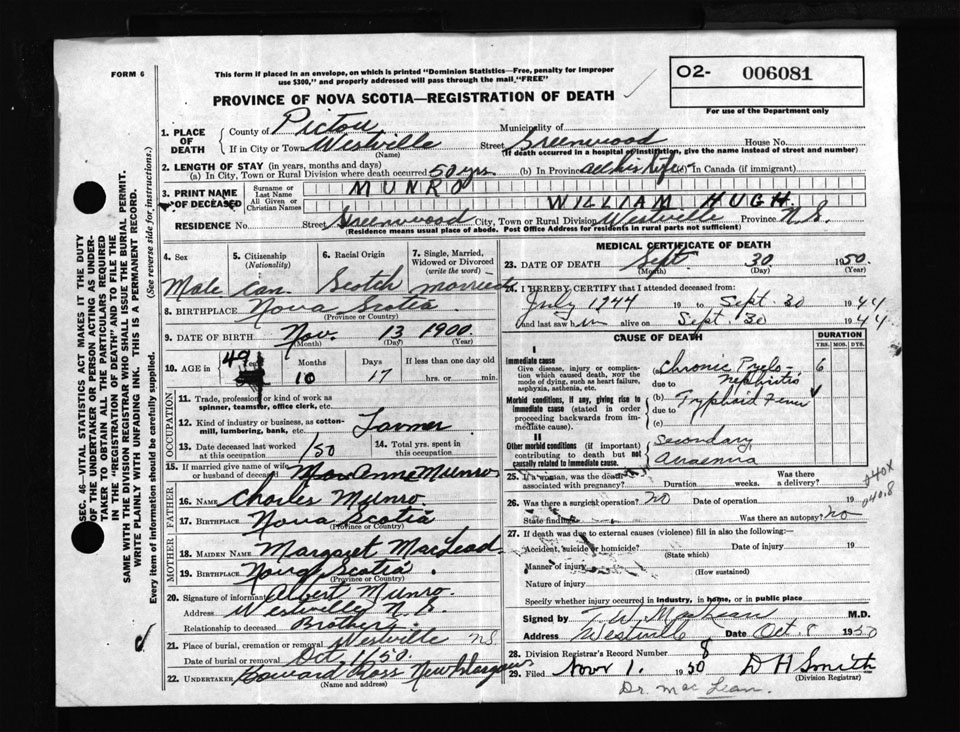 FORM 6
This form if placed in an envelope, on which is printed "Dominion Statistics—Free, penalty for improper
use $300," and properly addressed will pass through the mail "FREE"
O2- 006081
For use of the Department only
PROVINCE OF NOVA SCOTIA—REGISTRATION OF DEATH
1. PLACE OF DEATH
County of Pictou Municipality of
If in City or Town Westville Street Greenwood House No.
(Name) (If death occurred in a hospital or institution, give the name instead of street and number)
2. LENGTH OF STAY (in years, months and days)
(a) In City, Town or Rural Division where death occurred 50 yrs (b) In Province all his life (c) In Canada (if immigrant)
3. PRINT NAME OF DECEASED
Surname or Last Name MUNRO
All Given or Christian Names WILLIAM HUGH
RESIDENCE No. Street Greenwood City, Town or Rural Division Westville Province N.S.
(Residence means usual place of abode. Post Office Address for residents in rural parts not sufficient)
4. Sex Male
5. Citizenship (Nationality) Can.
6. Racial Origin Scotch
7. Single, Married, Widowed or Divorced (write the word) married
8. BIRTHPLACE Nova Scotia
(Province or Country)
9. DATE OF BIRTH Nov. 13 1900
(Month) (Day) (Year)
10. AGE in 49 Years 10 Months 17 Days If less than one day old
hrs. or min.
OCCUPATION
11. Trade, profession or kind of work as
spinner, teamster, office clerk, etc.
12. Kind of industry or business, as cotton-
mill, lumbering, bank, etc. Farmer
13. Date deceased last worked
at this occupation 1/50
14. Total yrs. spent in
this occupation
15. If married give name of wife
or husband of deceased Anne Munro
FATHER
16. NAME Charles Munro
17. BIRTHPLACE Nova Scotia
(Province or Country)
MOTHER
18. MAIDEN NAME Margaret MacLeod
19. BIRTHPLACE Nova Scotia
(Province or Country)
20. Signature of informant Albert Munro
Address Westville N.S.
Relationship to deceased Brother
21. Place of burial, cremation or removal Westville NS
Date of burial or removal Oct 1/50.
22. UNDERTAKER Howard Ross New Glasgow
(Name and address)
MEDICAL CERTIFICATE OF DEATH
23. DATE OF DEATH Sept. 30 1950.
(Month) (Day) (Year)
24. I HEREBY CERTIFY that I attended deceased from:
July 1944 19 to Sept. 30 1944
and last saw him alive on Sept 30 1944
CAUSE OF DEATH
DURATION
YRS. MOS. DYS.
I
Immediate cause
Give disease, injury or complica-
tion which caused death, not the
mode of dying, such as heart failure,
asphyxia, asthenia, etc.
(a) Chronic Pyelo- 6
due to nephritis
Morbid conditions, if any, giving rise to
immediate cause (stated in order
proceeding backwards from im-
mediate cause).
(b) Typhoid Fever
due to
(c)
II
Other morbid conditions (if important)
contributing to death but not
causally related to immediate cause.
Secondary
Anaemia
25. If a woman, was the death
associated with pregnancy? Duration weeks. Was there
a delivery?
240X
240.8
26. Was there a surgical operation? No Date of operation 19
State findings Was there an autopsy? No
27. If death was due to external causes (violence) fill in also the following:—
Accident, suicide or homicide? Date of injury 19
(State which)
Manner of injury
(How sustained)
Nature of injury
Specify whether injury occurred in industry, in home, or in public place
Signed by T W MacLean M.D.
Address Westville Date Oct. 8 1950
28. Division Registrar's Record Number 8
29. Filed Nov 1. 1950 D H Smith
(Division Registrar)
Dr. Mac Lean.
SEC. 46—VITAL STATISTICS ACT MAKES IT THE DUTY
OF THE UNDERTAKER OR PERSON ACTING AS UNDER-
TAKER TO OBTAIN ALL THE PARTICULARS REQUIRED
IN THE "REGISTRATION OF DEATH" AND TO FILE THE
SAME WITH THE DIVISION REGISTRAR WHO SHALL ISSUE THE BURIAL PERMIT.
WRITE PLAINLY WITH UNFADING INK. THIS IS A PERMANENT RECORD.
Every item of information should be carefully supplied. (See reverse side for instructions.)